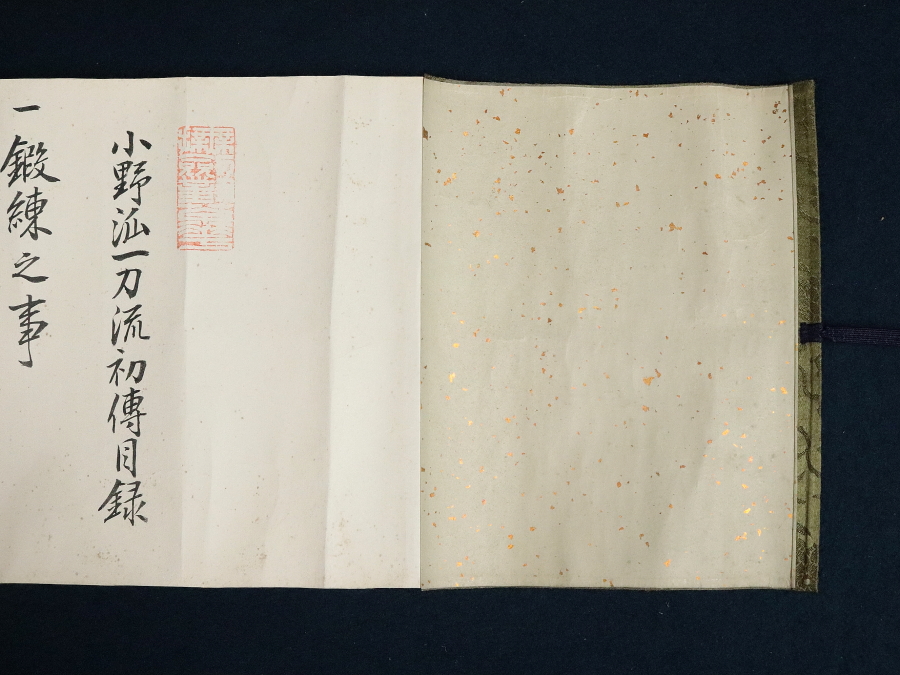 小野派一刀流初傳目録
一鍛練之事